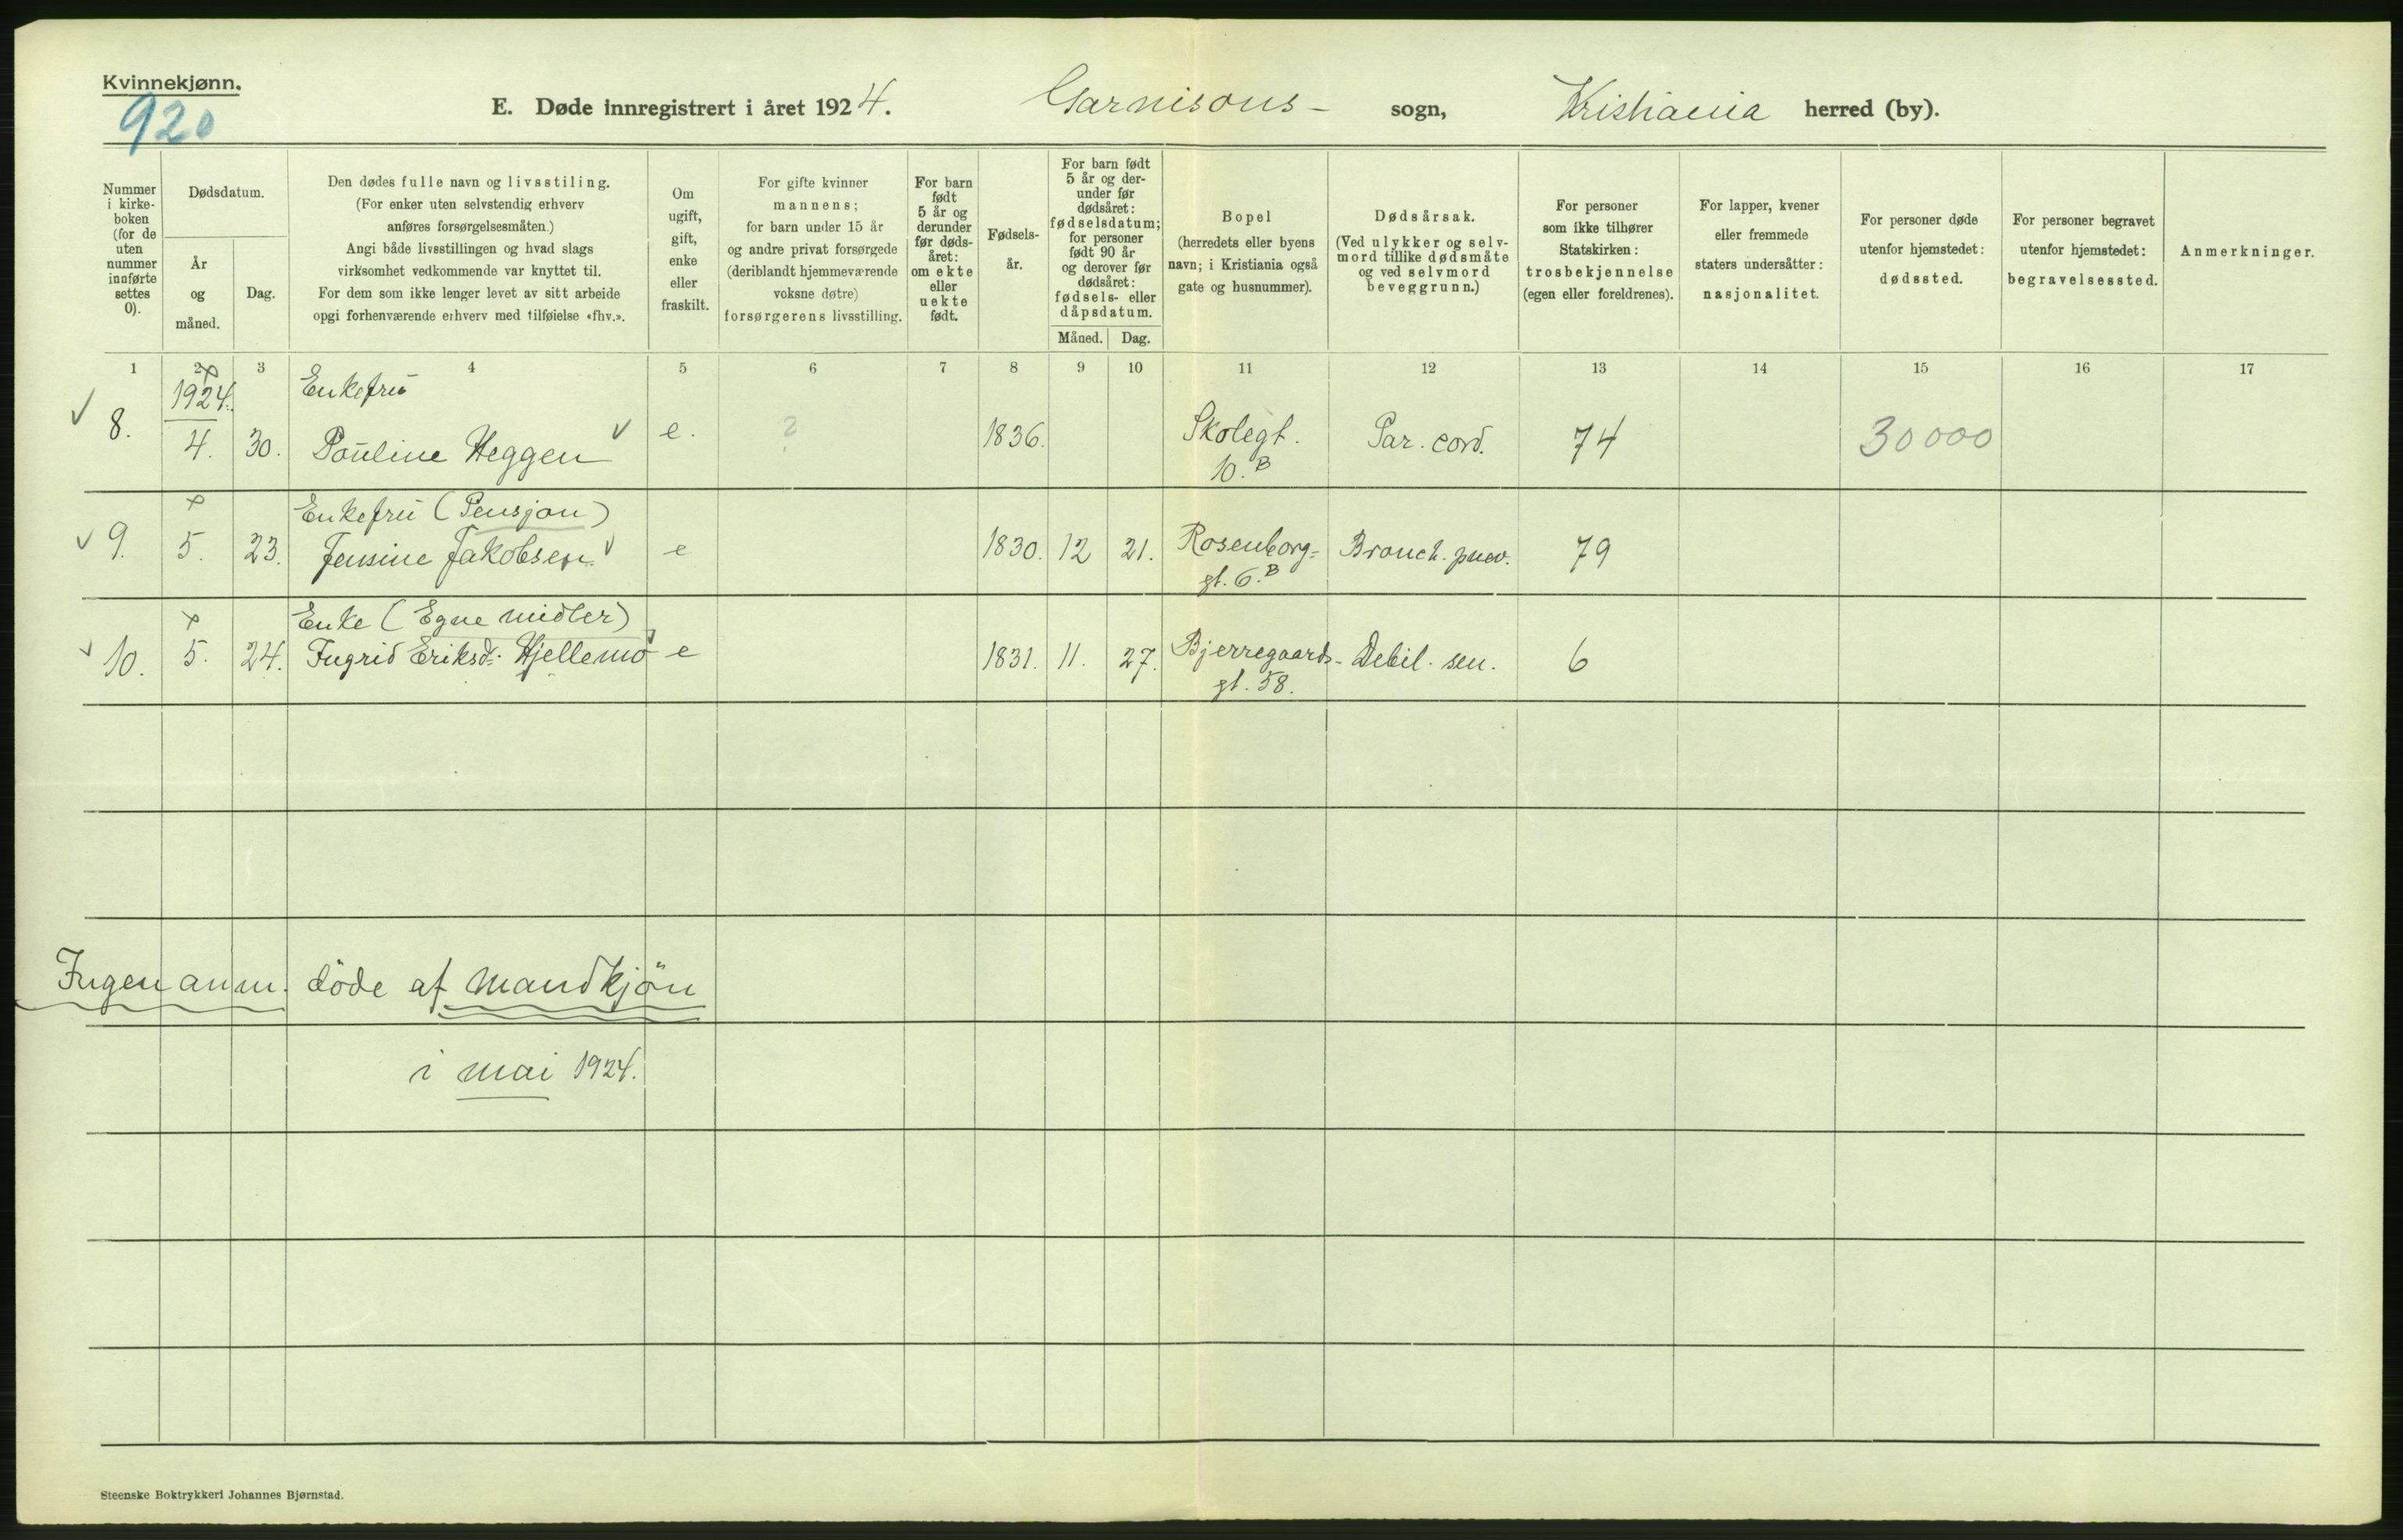 Kvinnekjønn.
920
E. Døde innregistrert i året 1924. Garnisons- sogn, Kristiania herred (by).
Nummer i kirke-boken (for de uten nummer innførte settes 0).
Dødsdatum.
År og måned.
Dag.
Den dødes fulle navn og livsstiling.
(For enker uten selvstendig erhverv
anføres forsørgelsesmåten.)
Angi både livsstillingen og hvad slags
virksomhet vedkommende var knyttet til.
For dem som ikke lenger levet av sitt arbeide
opgi forhenværende erhverv med tilføielse «fhv.».
Om
ugift,
gift,
enke
eller
fraskilt.
For gifte kvinner
mannens;
for barn under 15 år
og andre privat forsørgede
(deriblandt hjemmeværende
voksne døtre)
forsørgerens livsstilling.
For barn
født
5 år og
derunder
før døds-
året:
om ekte
eller
uekte
født.
Fødsels-
år.
For barn født
5 år og der-
under før
dødsåret:
fødselsdatum;
for personer
født 90 år
og derover før
dødsåret:
fødsels- eller
dåpsdatum.
Måned. Dag.
Bopel
(herredets eller byens
navn; i Kristiania også
gate og husnummer).
Dødsårsak.
(Ved ulykker og selv-
mord tillike dødsmåte
og ved selvmord
beveggrunn.)
For personer
som ikke tilhører
Statskirken:
trosbekjennelse
(egen eller foreldrenes).
For lapper, kvener
eller fremmede
staters undersåtter:
nasjonalitet.
For personer døde
utenfor hjemstedet:
dødssted.
For personer begravet
utenfor hjemstedet:
begravelsessted.
Anmerkninger.
1 2 3 4 5 6 7 8 9 10 11 12 13 14 15 16 17
1924. Enkefru
8. 4. 30. Pauline Heggen e. ? 1836. Skolegt. 10.B Par. cord. 74 30000
Enkefru (Pensjon)
9. 5. 23. Jensine Jakobsen e 1830. 12 21. Rosenborg= gt. 6.B Bronch. pnev. 79
Enke (Egne midler)
10. 5. 24. Ingrid Eriksd. Hjellemo e 1831. 11. 27. Bjerregaards- gt. 58. Debil. sen. 6
Ingen anm. döde af mandkjön
i mai 1924.
Steenske Boktrykkeri Johannes Bjørnstad.